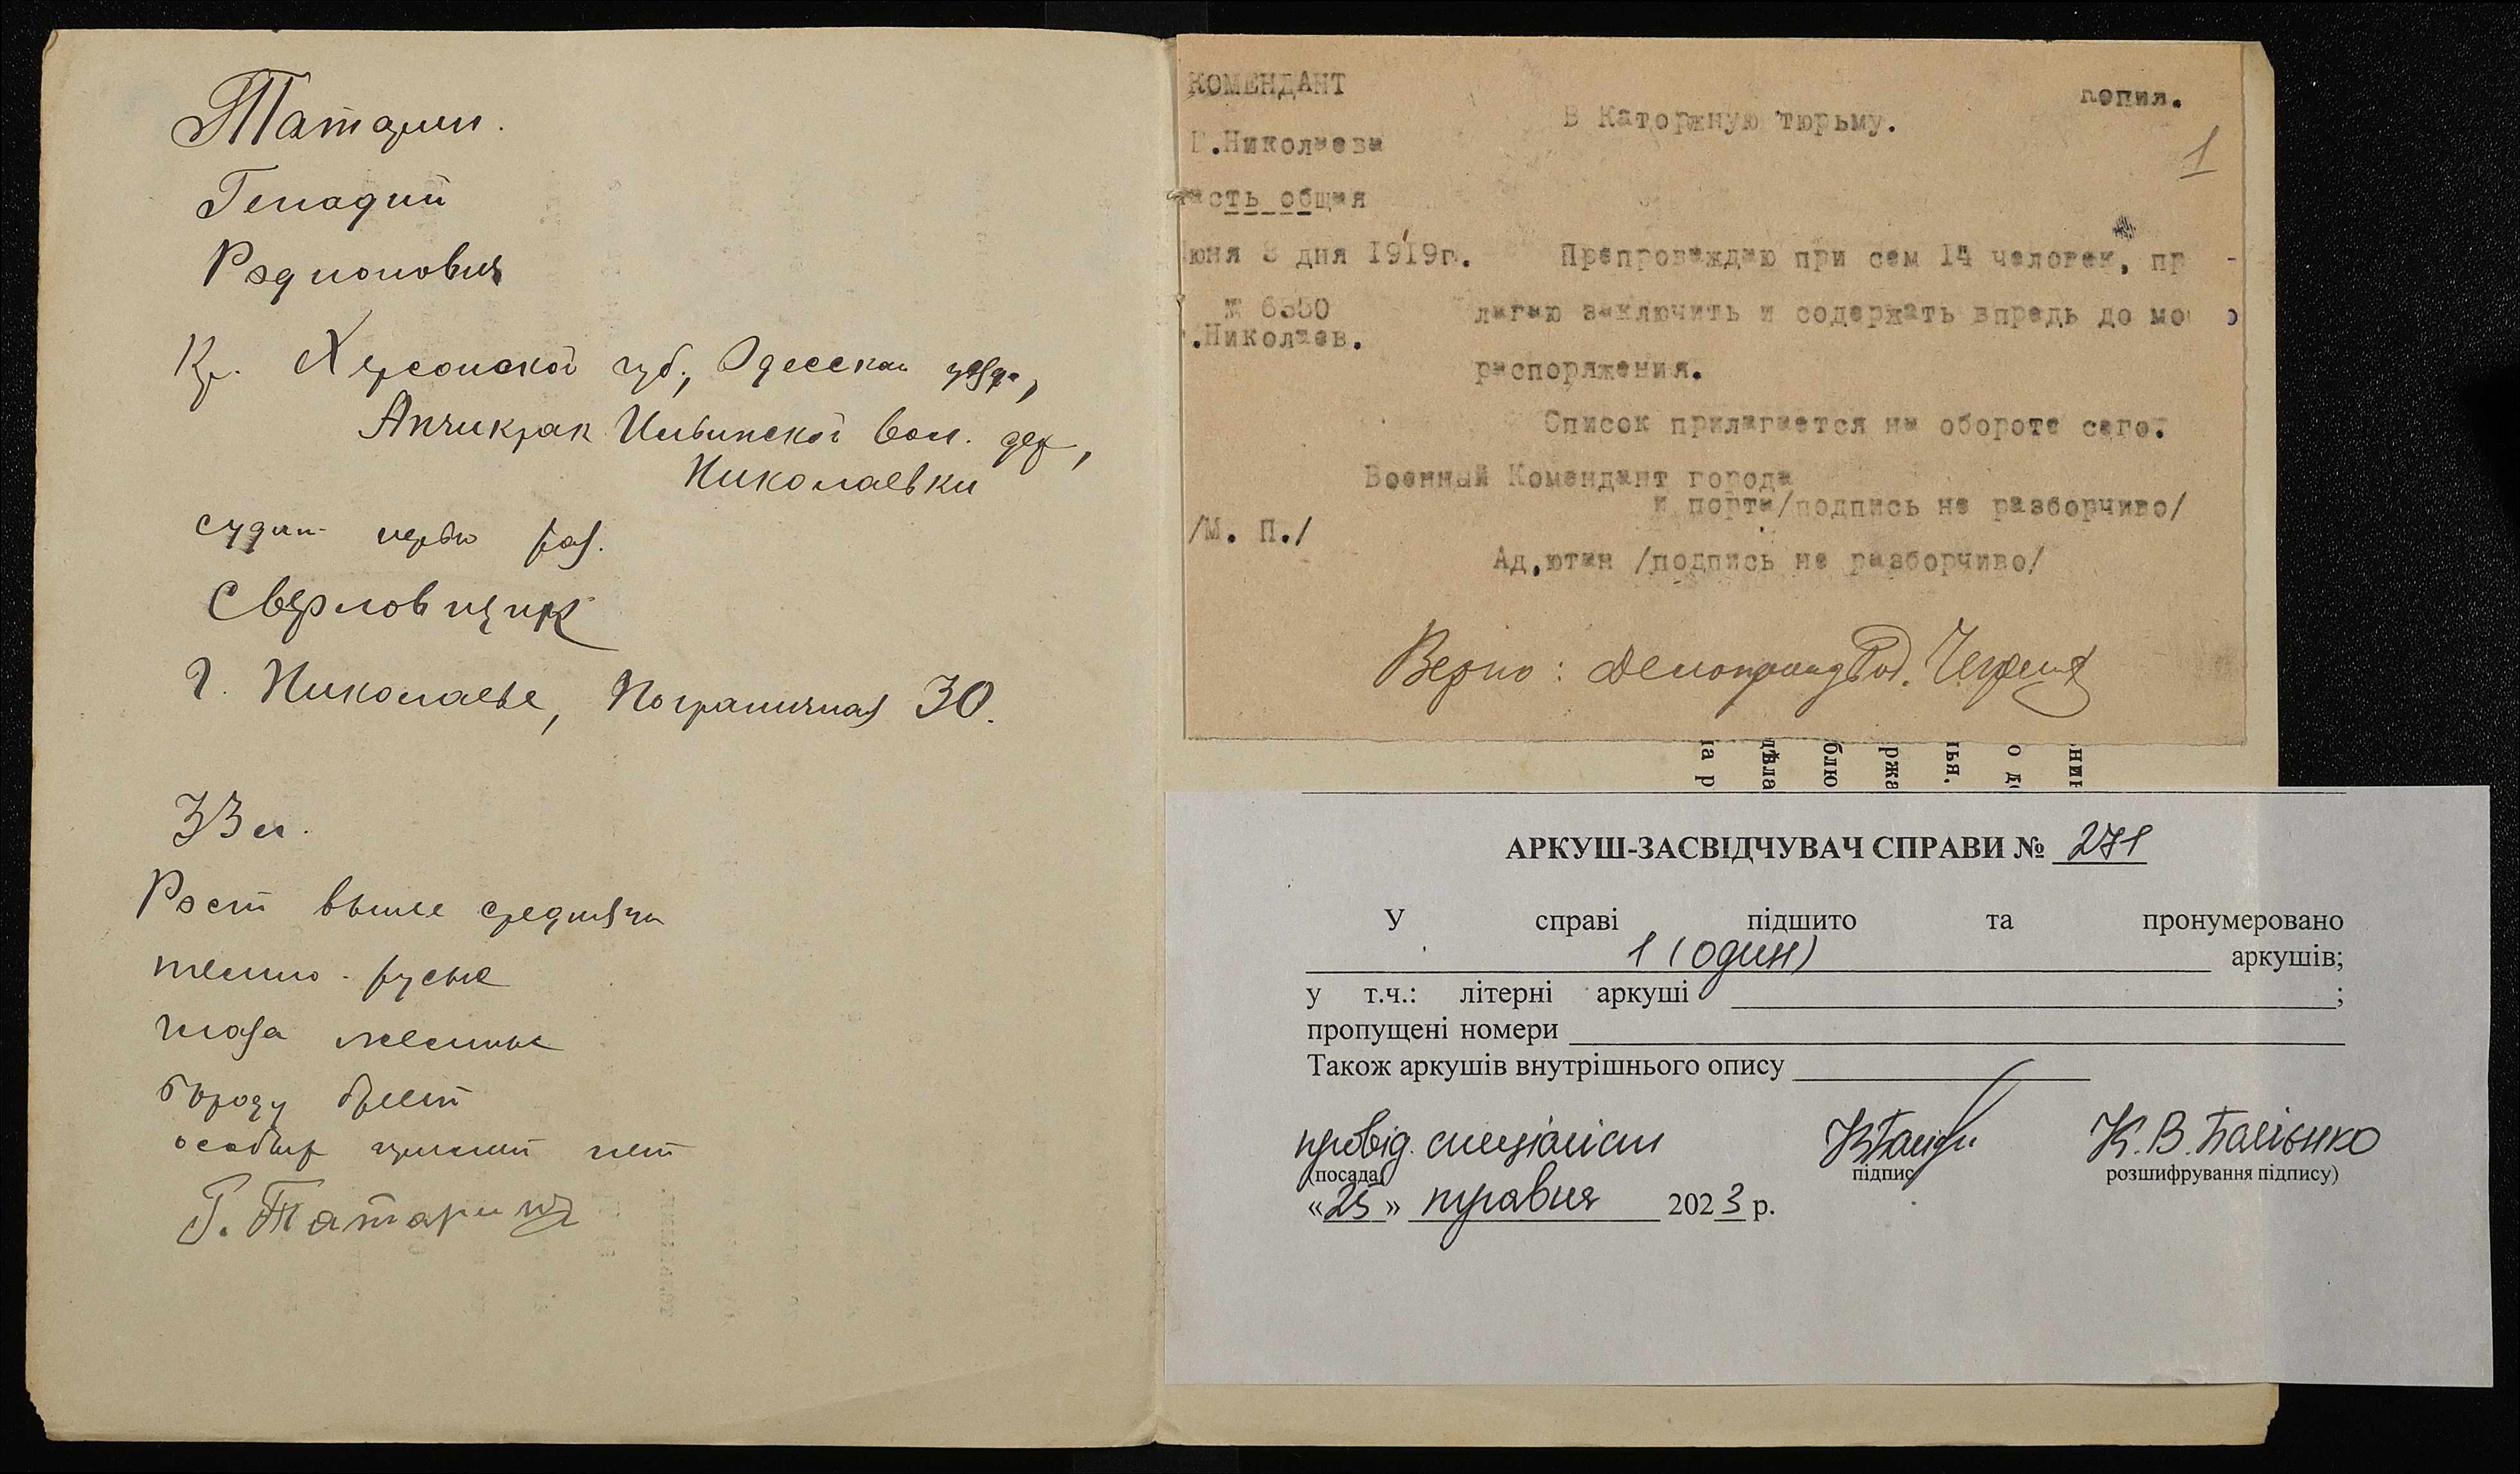 Татарин.
Генадий
Родионович
Кр. Херсонской губ., Одесскаго уезда,
Анчикрак Ильинской вол. дер,
Николаевки
судит. первый раз.
Сверловщик
г. Николаеве, Пограничная 30.
33 л.
Рост выше средняго
темно-русые
глаза
бороду бреет
особых примет нет
Г. Татарин
КОМЕНДАНТ
Г.Николаева
часть общая
Июня 8 дня 1919г.
№ 6350
г.Николаев.
копия.
В Каторжную тюрьму.
1
Препровождаю при сем 14 человек, пр -
лагаю заключить и содержать впредь до мо о
распоряжения.
Список прилагается на обороте сего.
Военный Комендант города
и порта/подпись не разборчиво/
/М. П./
Ад,ютан /подпись не разборчиво/
Верно:
АРКУШ-ЗАСВІДЧУВАЧ СПРАВИ № 271
У справі підшито та пронумеровано
1 (один) аркушів;
у т.ч.: літерні аркуші ;
пропущені номери
Також аркушів внутрішнього опису
провід. спеціаліст К. В. Балієнко
(посада) підпис розшифрування підпису)
«25» травня 2023 р.